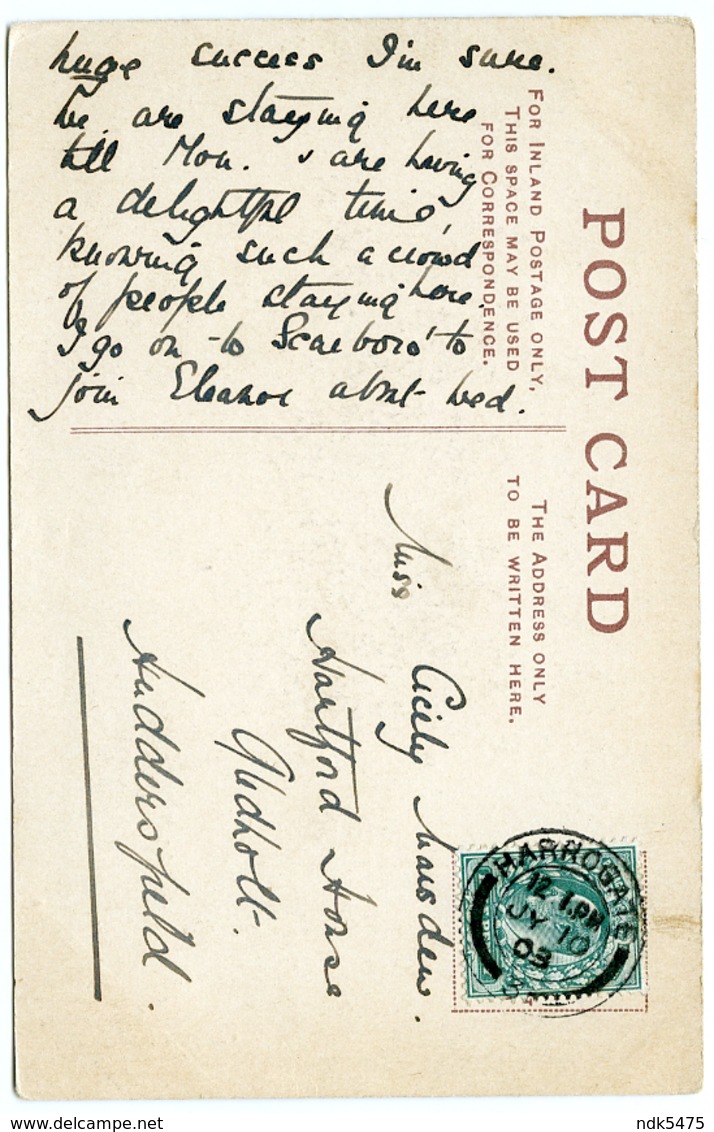 huge success I'm sure.
We are staying here
till Mon. & are having
a delightful time,
knowing such a crowd
of people staying here.
I go on to Scarboro' to
join Eleanor about Wed.
FOR INLAND POSTAGE ONLY,
THIS SPACE MAY BE USED
FOR CORRESPONDENCE.
POST CARD
THE ADDRESS ONLY
TO BE WRITTEN HERE.
Miss Cicily Marsden.
Hartford House
Gledholt.
Huddersfield.
HARROGATE
12. 1.PM
JY 10
03
delcampe.net
ndk5475